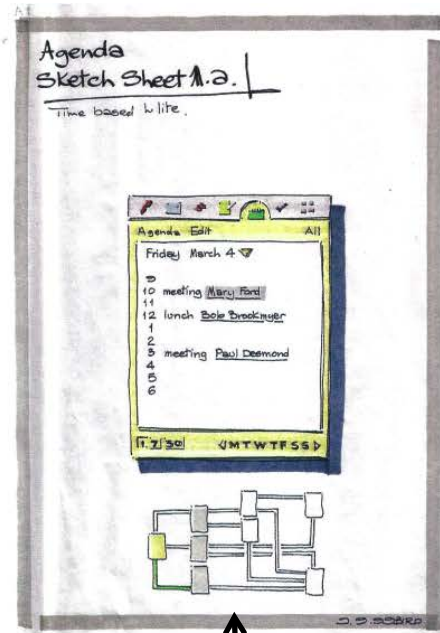 Agenda
Sketch Sheet 1.a.
Time based
Agenda Edit All
Friday March 4
9
10 meeting Mary Ford
11
12 lunch Bob Brookmyer
1
2
3 meeting Paul Desmond
4
5
6
1 7 30 M T W T F S S